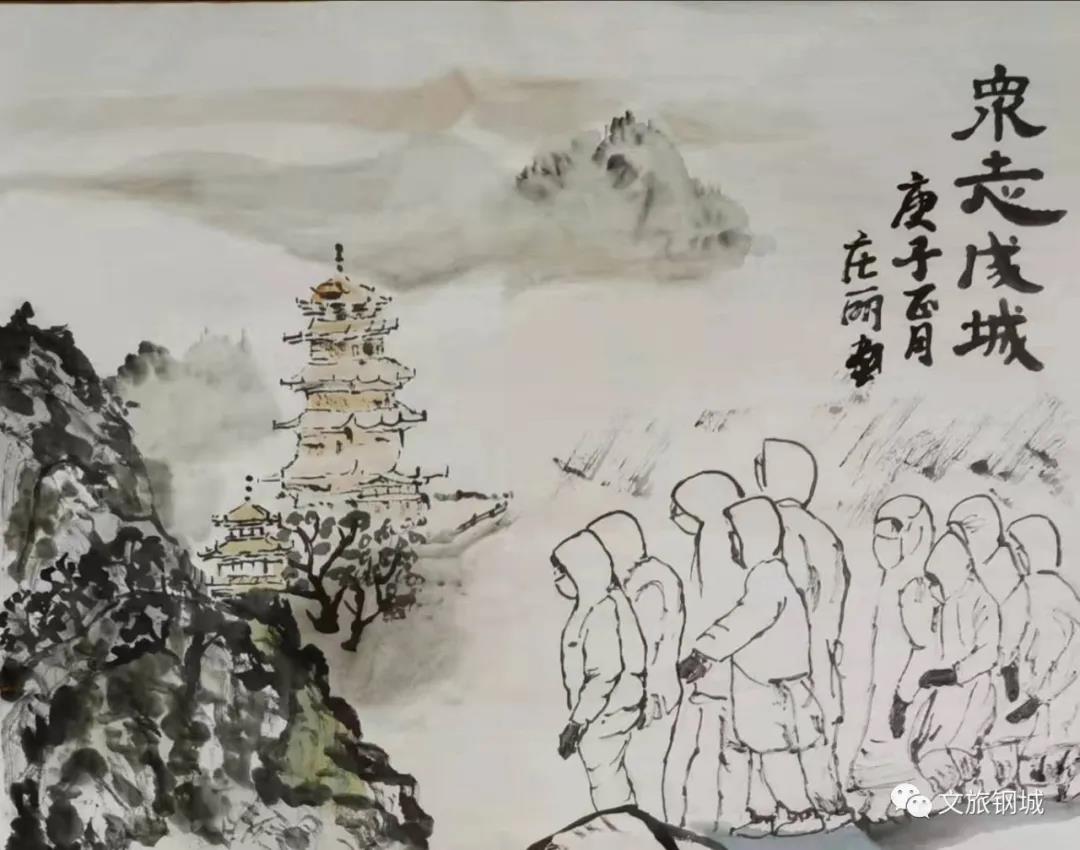 眾志成城
庚子正月
庄丽画
文旅钢城